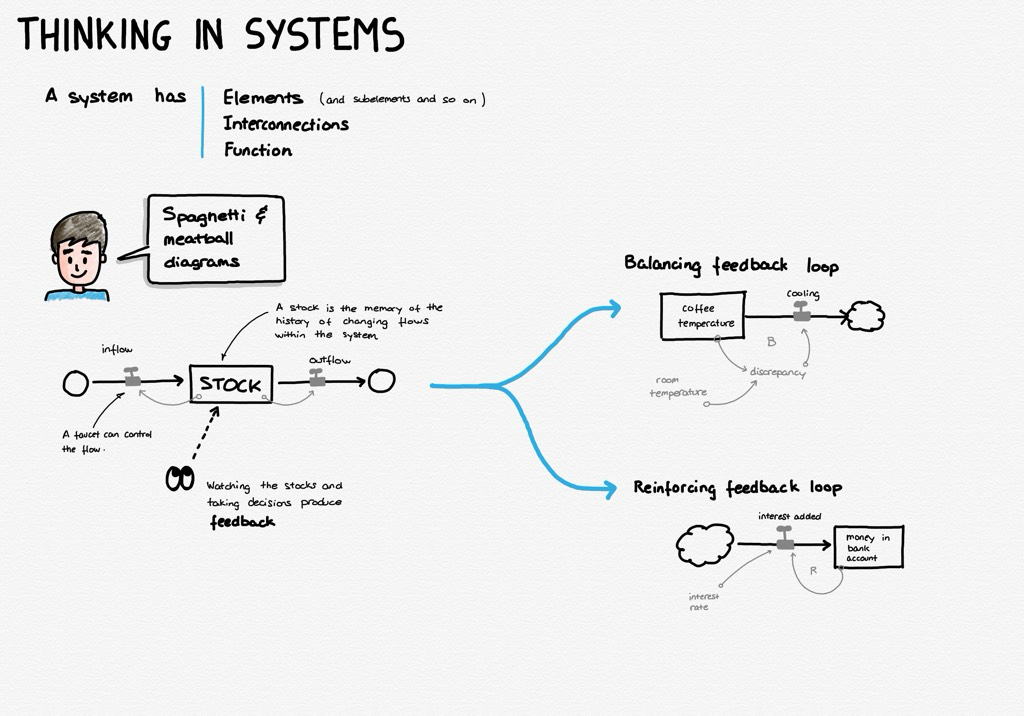 THINKING IN SYSTEMS
A system has
Elements (and subelements and so on)
Interconnections
Function
Spagnetti &
meatball
diagrams
A stock is the memory of the
history of changing flows
within the system
inflow
outflow
STOCK
A faucet can control
the flow.
Watching the stocks and
taking decisions produce
feedback
Balancing feedback loop
cooling
coffee
temperature
B
discrepancy
room
temperature
Reinforcing feedback loop
interest added
money in
bank
account
R
interest
rate